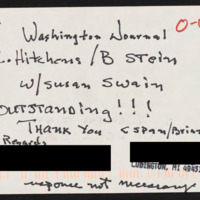 O-
Washington Journal
C. Hitchens / B Stein
w/ Susan Swain
OUTSTANDING!!!
Thank You CSPAN/Brian
Regards
LUDINGTON, MI 49431
response not necessary